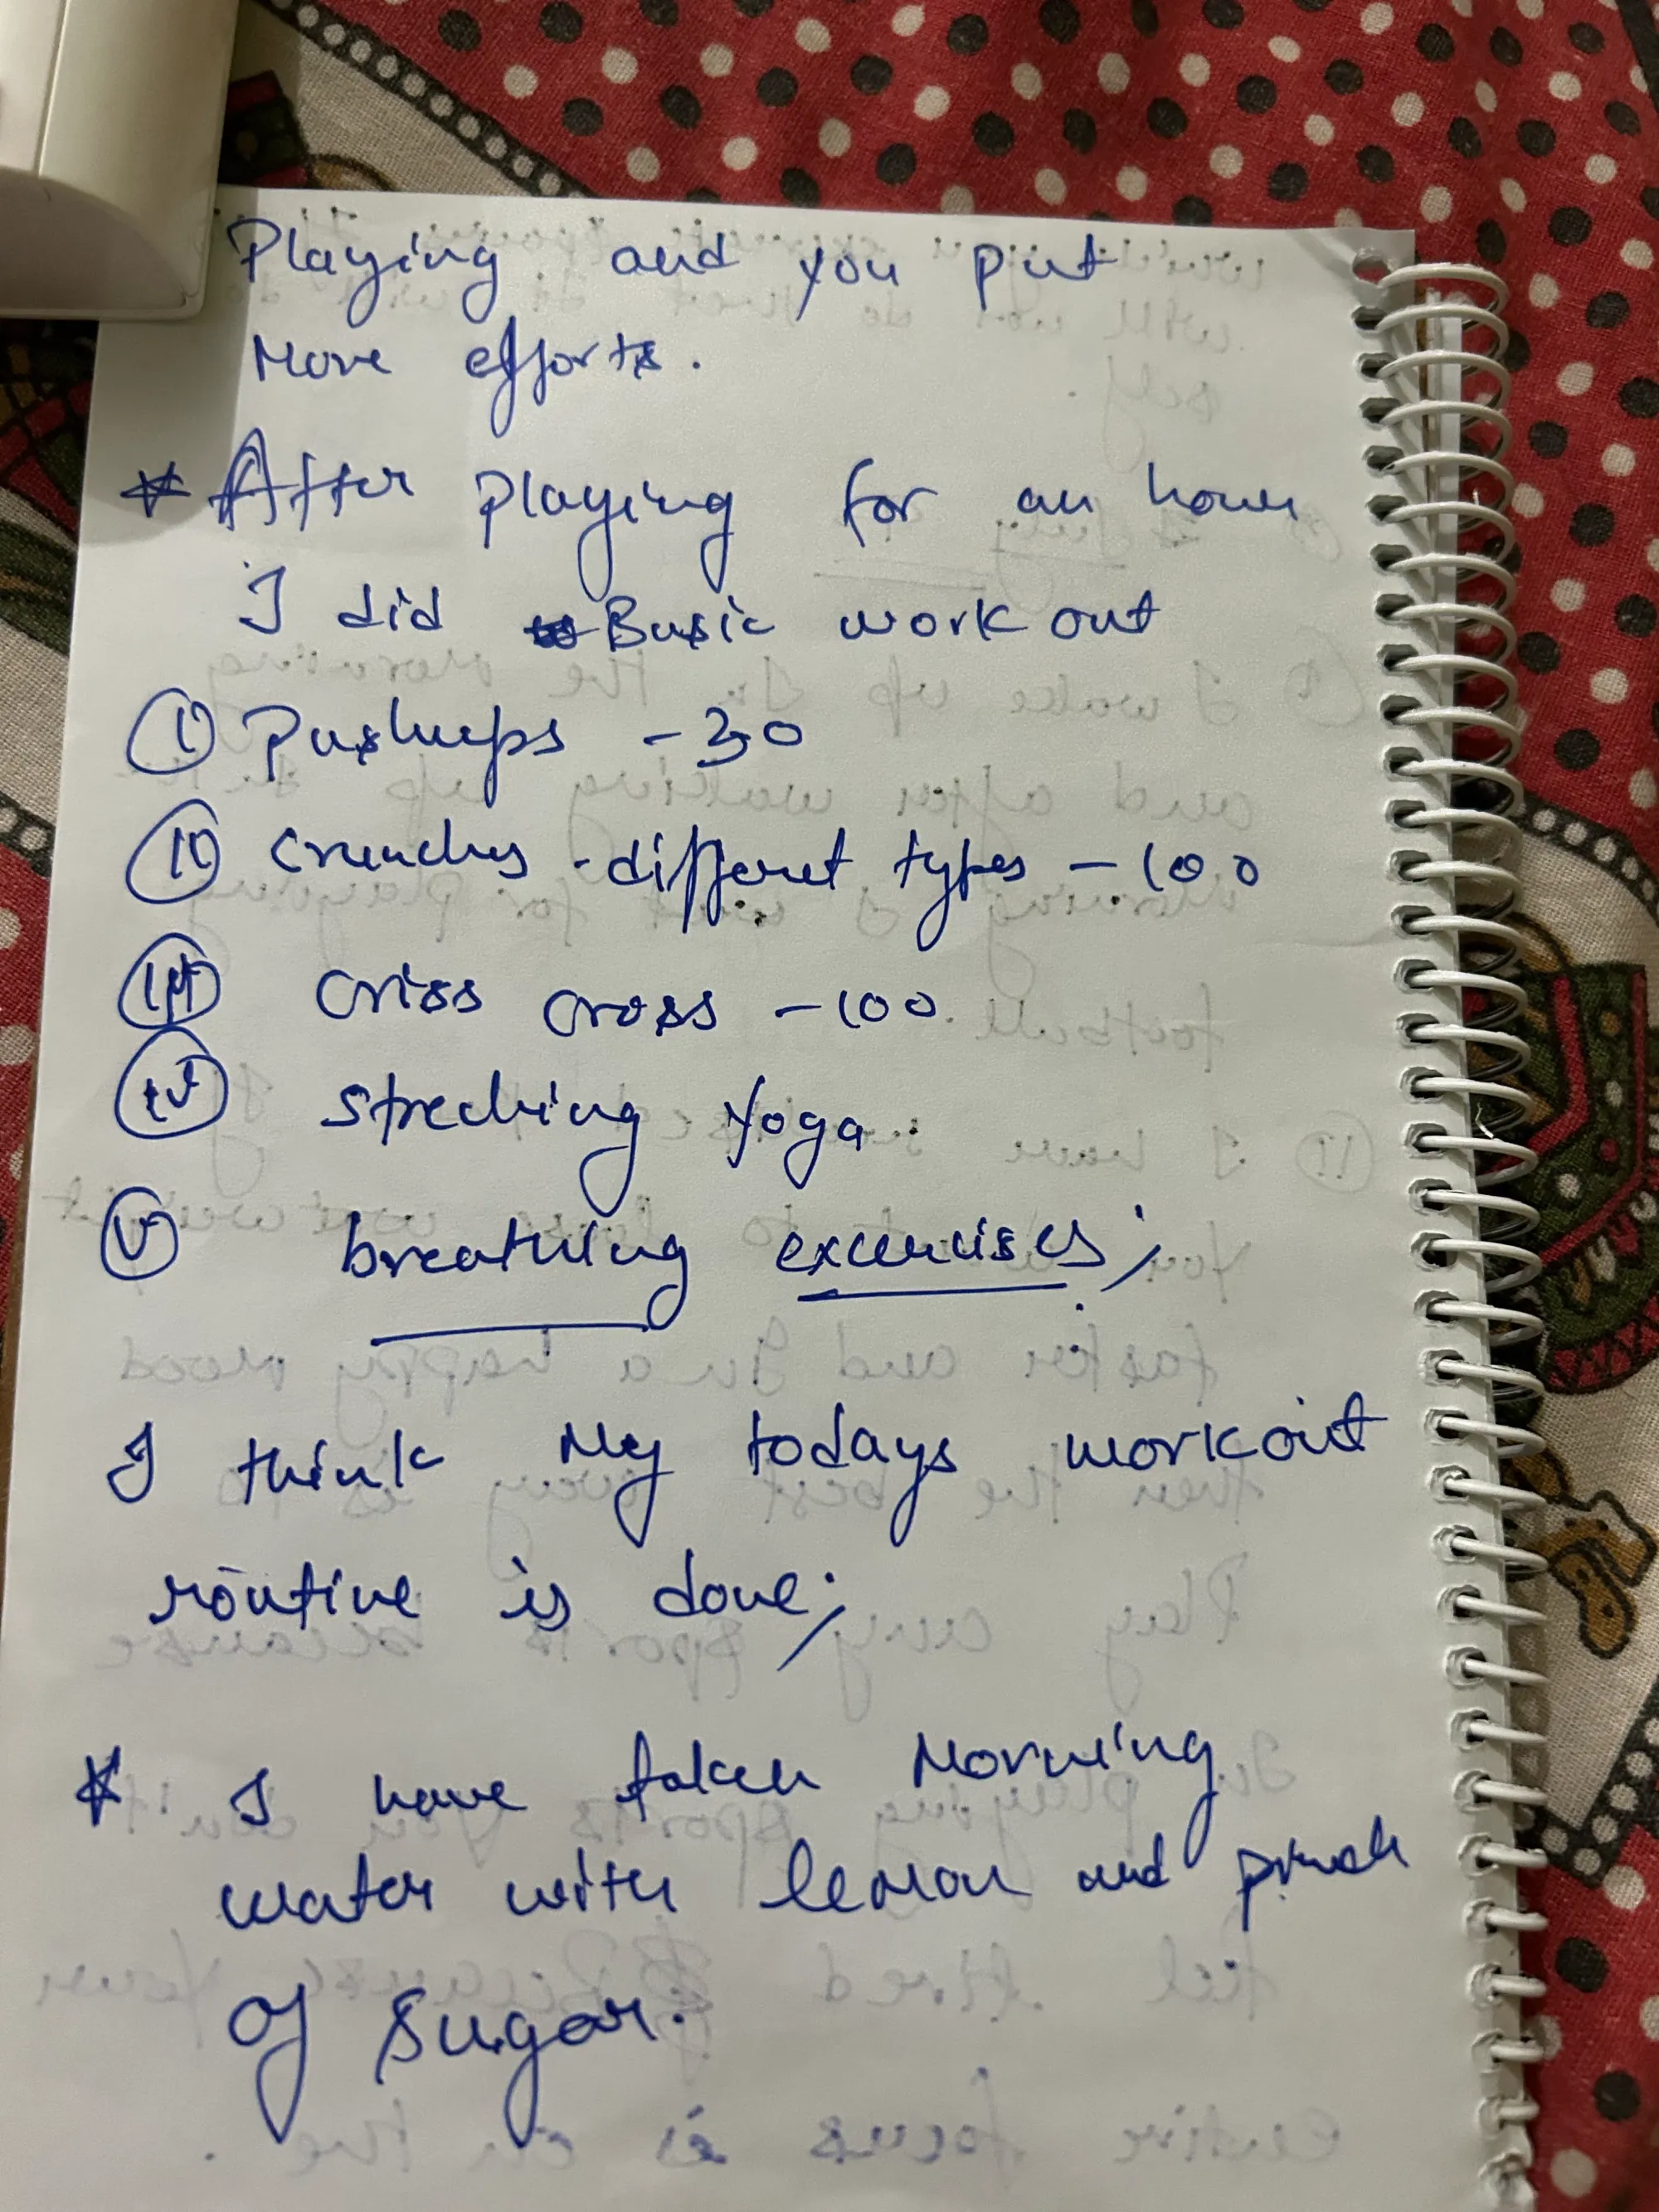 Playing and you put
More efforts.
* After playing for an hour
I did Basic work out
(i) Pushups - 30
(ii) Crunches - differet types - 100
(iii) Criss cross - 100
(iv) streching Yoga.
(v) breathing excercises;
I think My todays workout
routine is done;
* I have taken Morning
water with lemon and
of sugar.